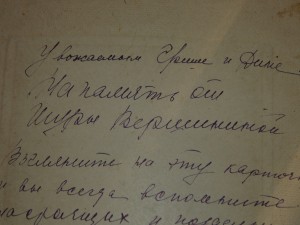 Уважаемым Грише и Дине
На память от
Шуры Вершининой
Взгляните на эту карточ
и вы всегда вспомните